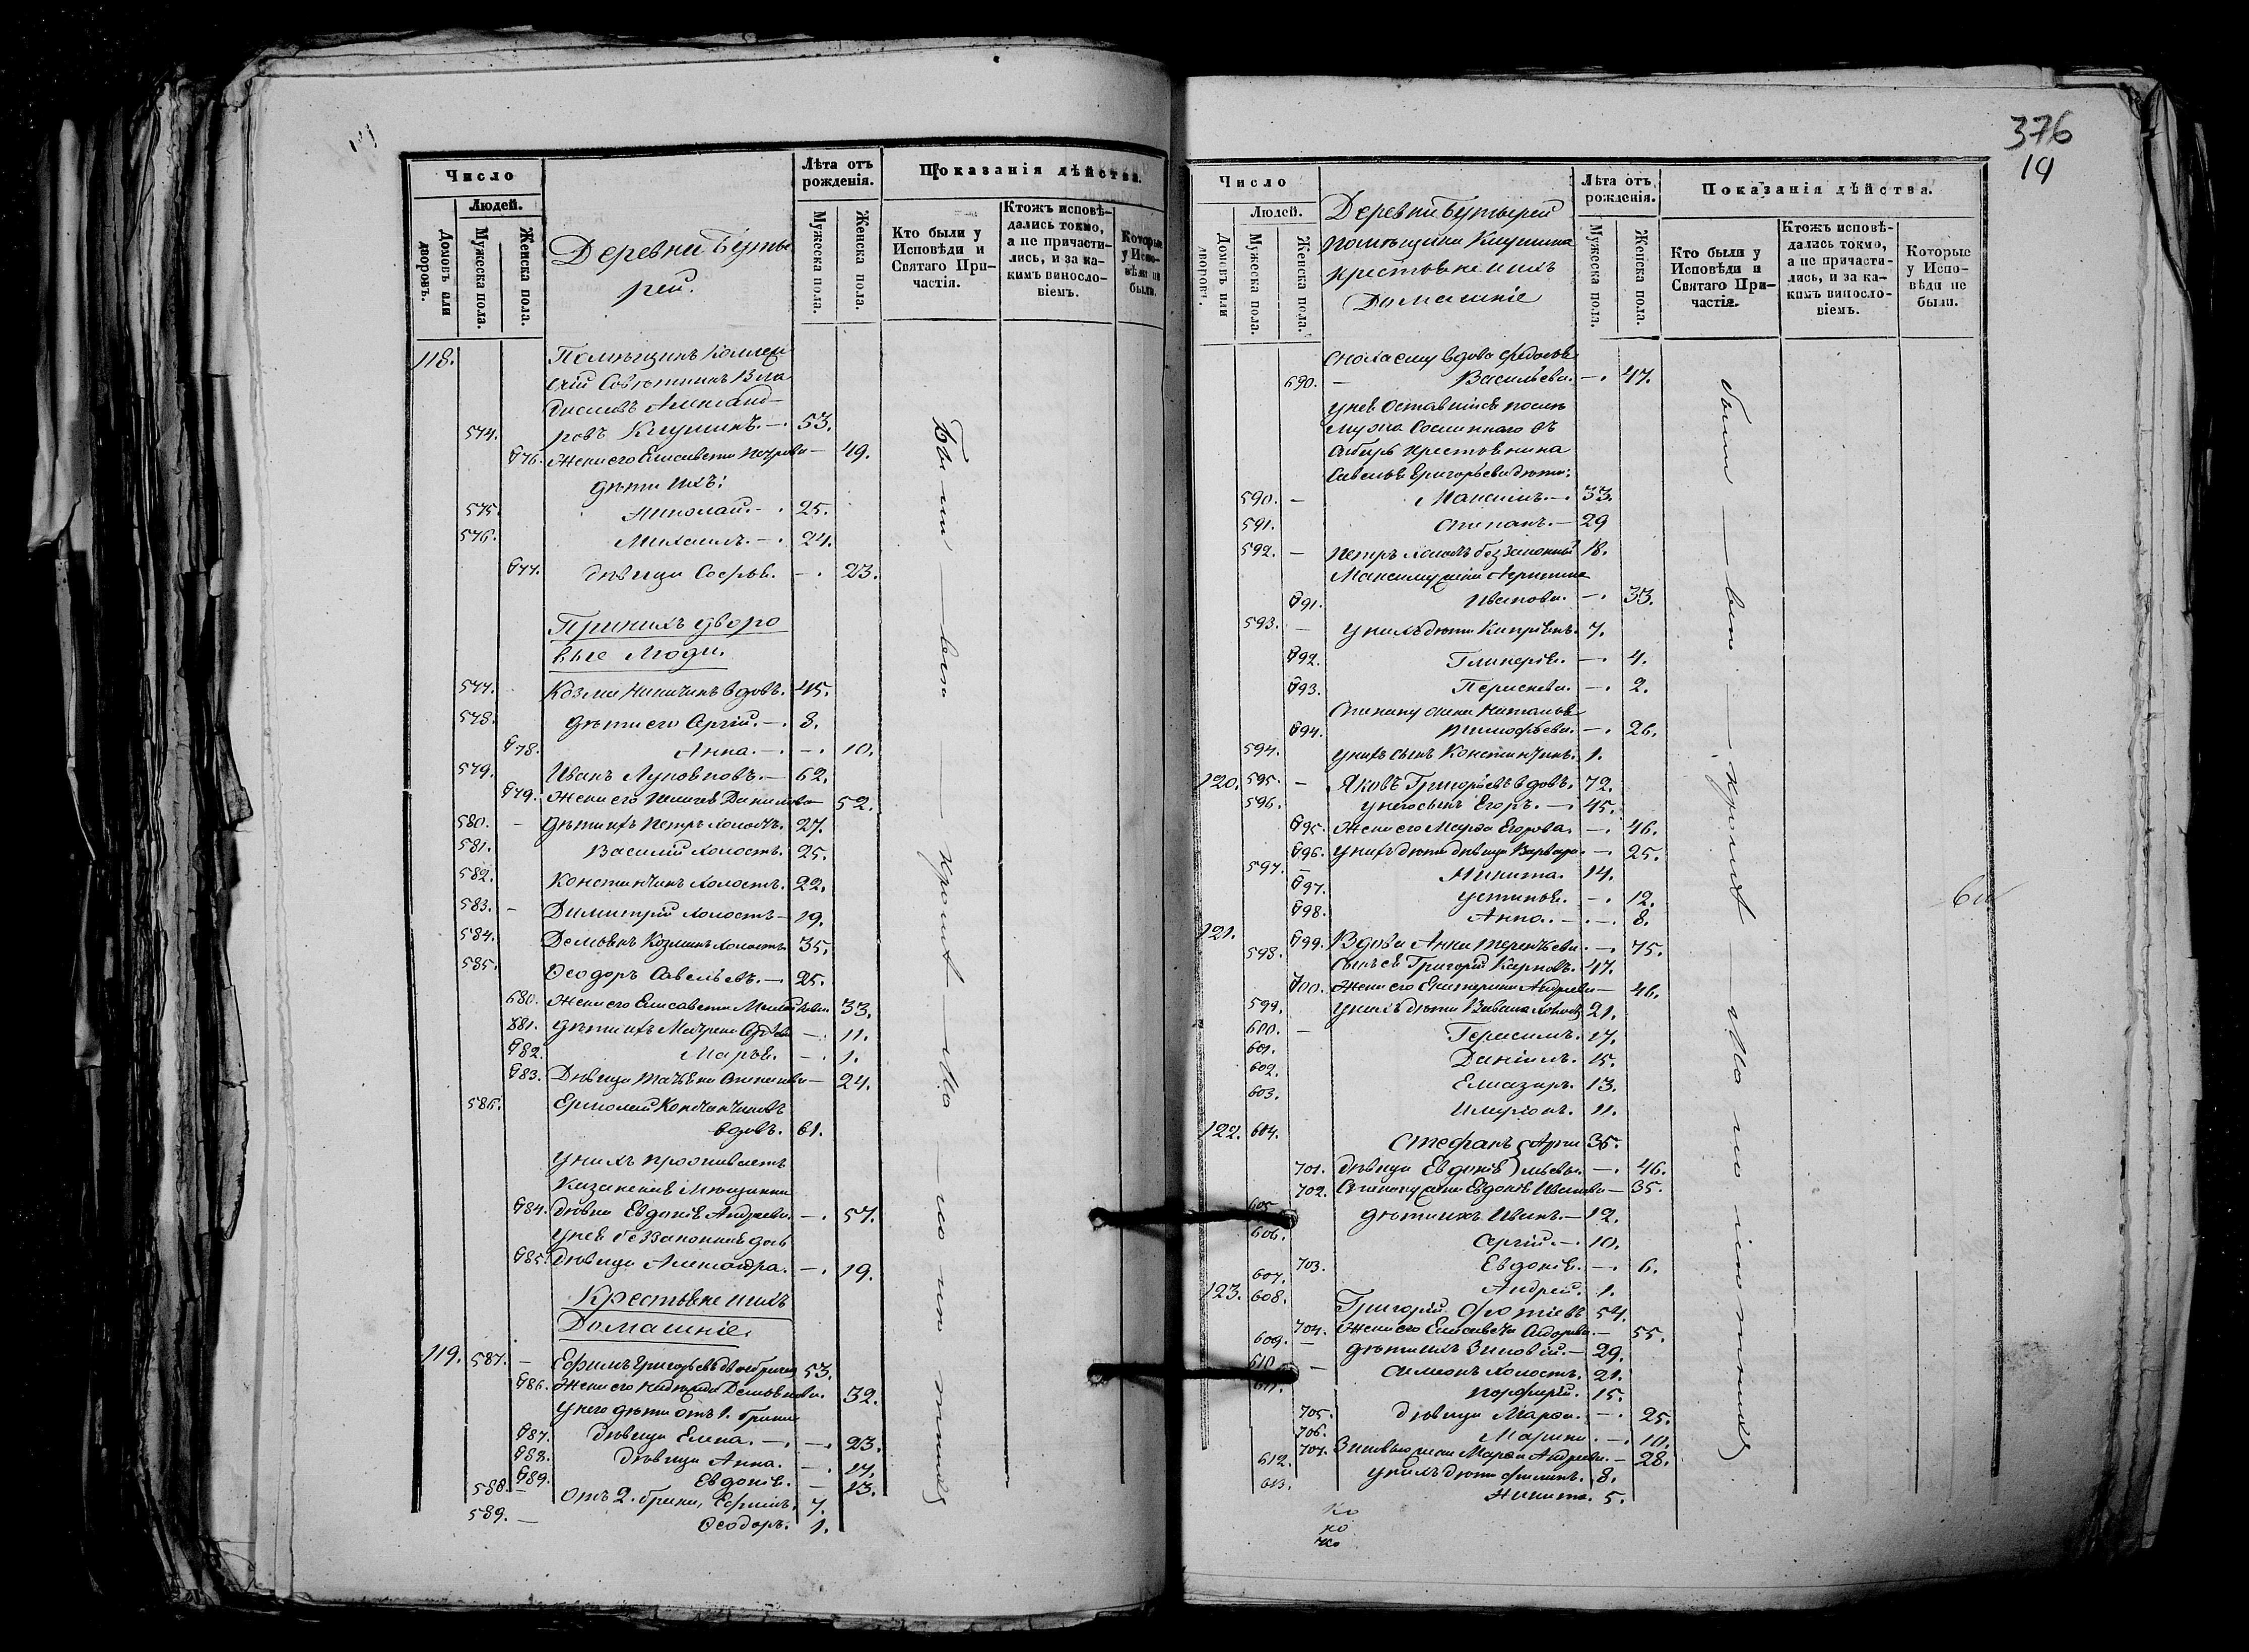 Число
Людей.
Домовъ или дворовъ.
Мужеска пола.
Женска пола.
Деревни Буты
рей.
Лѣта отъ рожденія.
Мужеска пола.
Женска пола.
Показанія дѣйства.
Кто были у Исповѣди и Святаго При-частія.
Ктожъ исповѣ-дались токмо, а не причасти-лись, и за ка-кимъ винословіемъ.
Которые у Испо-вѣди не были.
118. Помѣщикъ Коллеж
скій Совѣтникъ Вла
диславъ Александ-
574. ровъ 53.
676. Жена его Елисавета Петрова 49.
дѣти ихъ:
575. Николай. 25.
576. Михаилъ. 24.
677. дѣвица Софья. 23.
При нихъ дворо
вые Люди.
577. Козма Никитинъ вдовъ. 45.
578. дѣти его Сергій. 8.
678. Анна. 10.
579. Иванъ 62.
679. Жена его Данилова 52.
580. дѣти ихъ Петръ холостъ. 27.
581. Василій холостъ. 25.
582. Константинъ холостъ. 22.
583. Димитрій холостъ 19.
584. Демьянъ Козминъ холостъ. 35.
585. Ѳеодоръ Савельевъ. 25.
680. Жена его Елисавета 33.
681. дѣти ихъ 11.
682. Марья. 1.
683. Дѣвица Татьяна 24.
586. Ермолай Константиновъ
вдовъ. 61.
у нихъ проживаетъ
684. дѣвка Евдокія Андреева. 57.
у нея беззаконная дочь
685. Дѣвица Александра. 19.
Крестьяне ихъ
Домашніе.
119. 587. Ефимъ Григорьевъ 53.
686. Жена его Демьянова. 32.
у него дѣти отъ 1. брака
687. дѣвица Елена. 23.
688. дѣвица Анна. 17.
689. Евдокія. 13.
588. отъ 2. брака, Ефимъ. 7.
589. Ѳеодоръ. 1.
Были всѣ кромѣ
376
19
Число
Людей.
Домовъ или дворовъ.
Мужеска пола.
Женска пола.
Деревни Бутырей
помѣщика
крестьяне ихъ
Домашніе
Лѣта отъ рожденія.
Мужеска пола.
Женска пола.
Показанія дѣйства.
Кто были у Исповѣди и Святаго При-частія.
Ктожъ исповѣ-дались токмо, а не причасти-лись, и за ка-кимъ винословіемъ.
Которые у Испо-вѣди не были.
сноха ему вдова
690. Васильева. 47.
у нея оставшіеся послѣ
мужа сосланнаго въ
сибирь крестьянина
Савелья Григорьева дѣти:
590. Максимъ. 33.
591. Степанъ. 29
592. Петръ холостъ беззаконный 18.
Максиму жена
691. Иванова. 33.
593. у нихъ дѣти 7.
692. Гликерія. 4.
693. 2.
Степану жена Наталья
694. Тимофѣева. 26.
594. у нихъ сынъ Константинъ. 1.
120. 595. Яковъ Григорьевъ вдовъ. 72.
596. у него сынъ Егоръ. 45.
695. Жена его Марфа Егорова. 46.
696. у нихъ дѣти дѣвица Варвара. 25.
597. Никита. 14.
697. Устинья. 12.
698. Анна. 8.
121. 699. Вдова Анна Терентьева. 75.
598. сынъ ея Григорій Карповъ. 47.
700. Жена его Екатерина Андреева 46.
599. у нихъ дѣти 21.
600. Герасимъ. 17.
601. Даніилъ. 15.
602. Елиазаръ. 13.
603. Иларіонъ. 11.
122. 604. Стефанъ 35.
701. дѣвица Евдокія 46.
702. Степану жена Евдокія Иванова 35.
605 дѣти ихъ Иванъ. 12.
606. Сергій. 10.
703. Евдокія. 6.
607. Андрей. 1.
123. 608. Григорій 54.
704. Жена его Елисавета 55.
609. дѣти ихъ Зиновій. 29.
610 Симеонъ холостъ. 21.
611. Порфирій. 15.
705. дѣвица Марфа. 25.
706. Марина. 10.
707. Зиновью жена Марфа Андреева. 28.
612. у нихъ дѣти Филипъ. 8.
613. Никита. 5.
были всѣ кромѣ